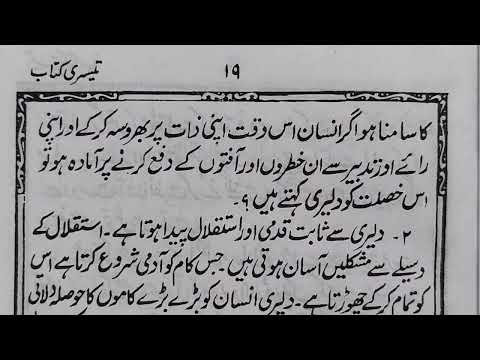 تیسری کتاب ۱۹
کا سامنا ہوا اگر انسان اس وقت اپنی ذات پر بھروسہ کرکے اور اپنی
رائے اور تدبیر سے ان خطروں اور آفتوں کے دفع کرنے پر آمادہ ہو تو
اس خصلت کو دلیری کہتے ہیں ۹۔
۲۔ دلیری سے ثابت قدمی اور استقلال پیدا ہوتا ہے۔ استقلال کے
وسیلے سے مشکلیں آسان ہوتی ہیں۔ جس کام کو آدمی شروع کرتا ہے اس
کو تمام کرکے چھوڑتا ہے۔ دلیری انسان کو بڑے بڑے کاموں کا حوصلہ دلاتی